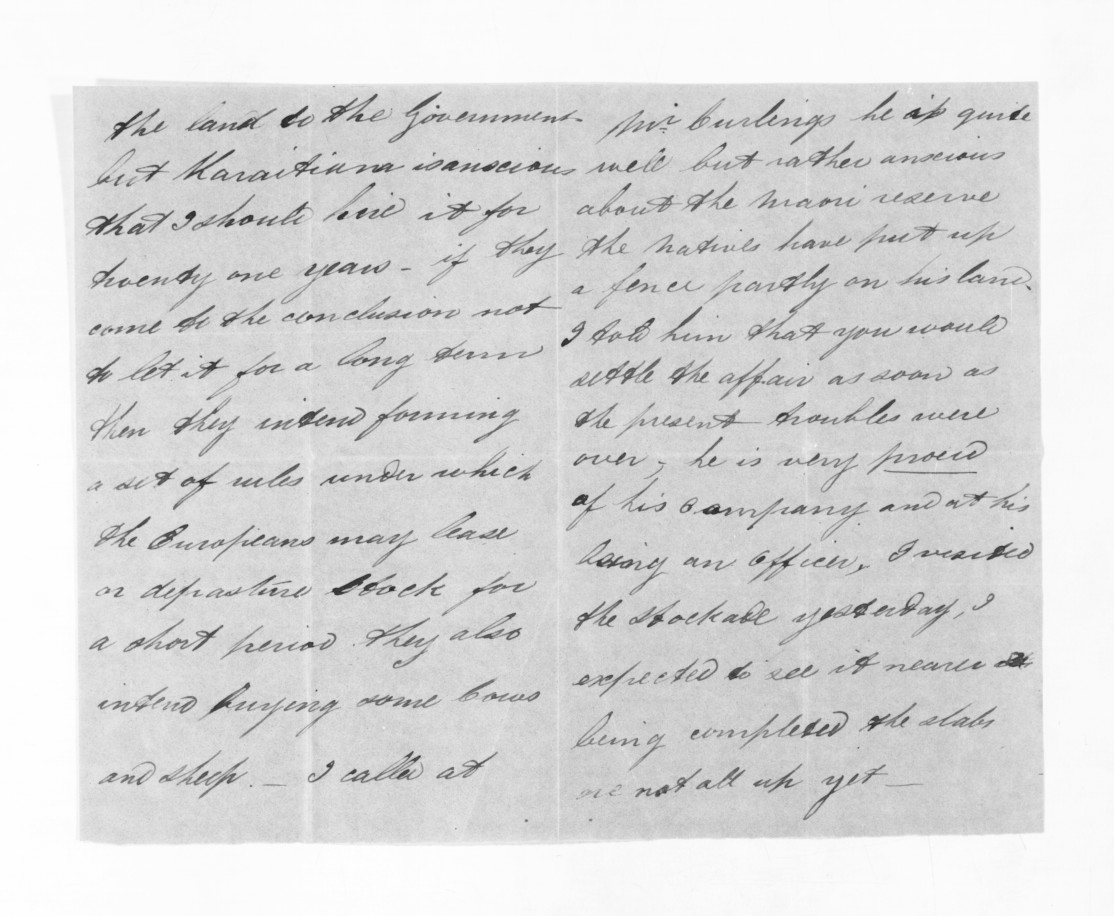 the land to the Government
but Karaitiana is anscious
that I should hire it for
twenty one years - if they
come to the conclusion not
to let it for a long term
then they intend forming
a set of rules under which
the Europeans may lease
or depasture stock for
a short period they also
intend buying some Cows
and sheep. — I called at
Mr. Burlings he is quite
well but rather anscious
about the Maori reserve
the Natives have put up
a fence partly on his land.
I told him that you would
settle the affair as soon as
the present troubles were
over, he is very proud
of his Company and at his
being an Officer, I visited
the Stockade yesterday, I
expected to see it nearer
being completed the slabs
are not all up yet —